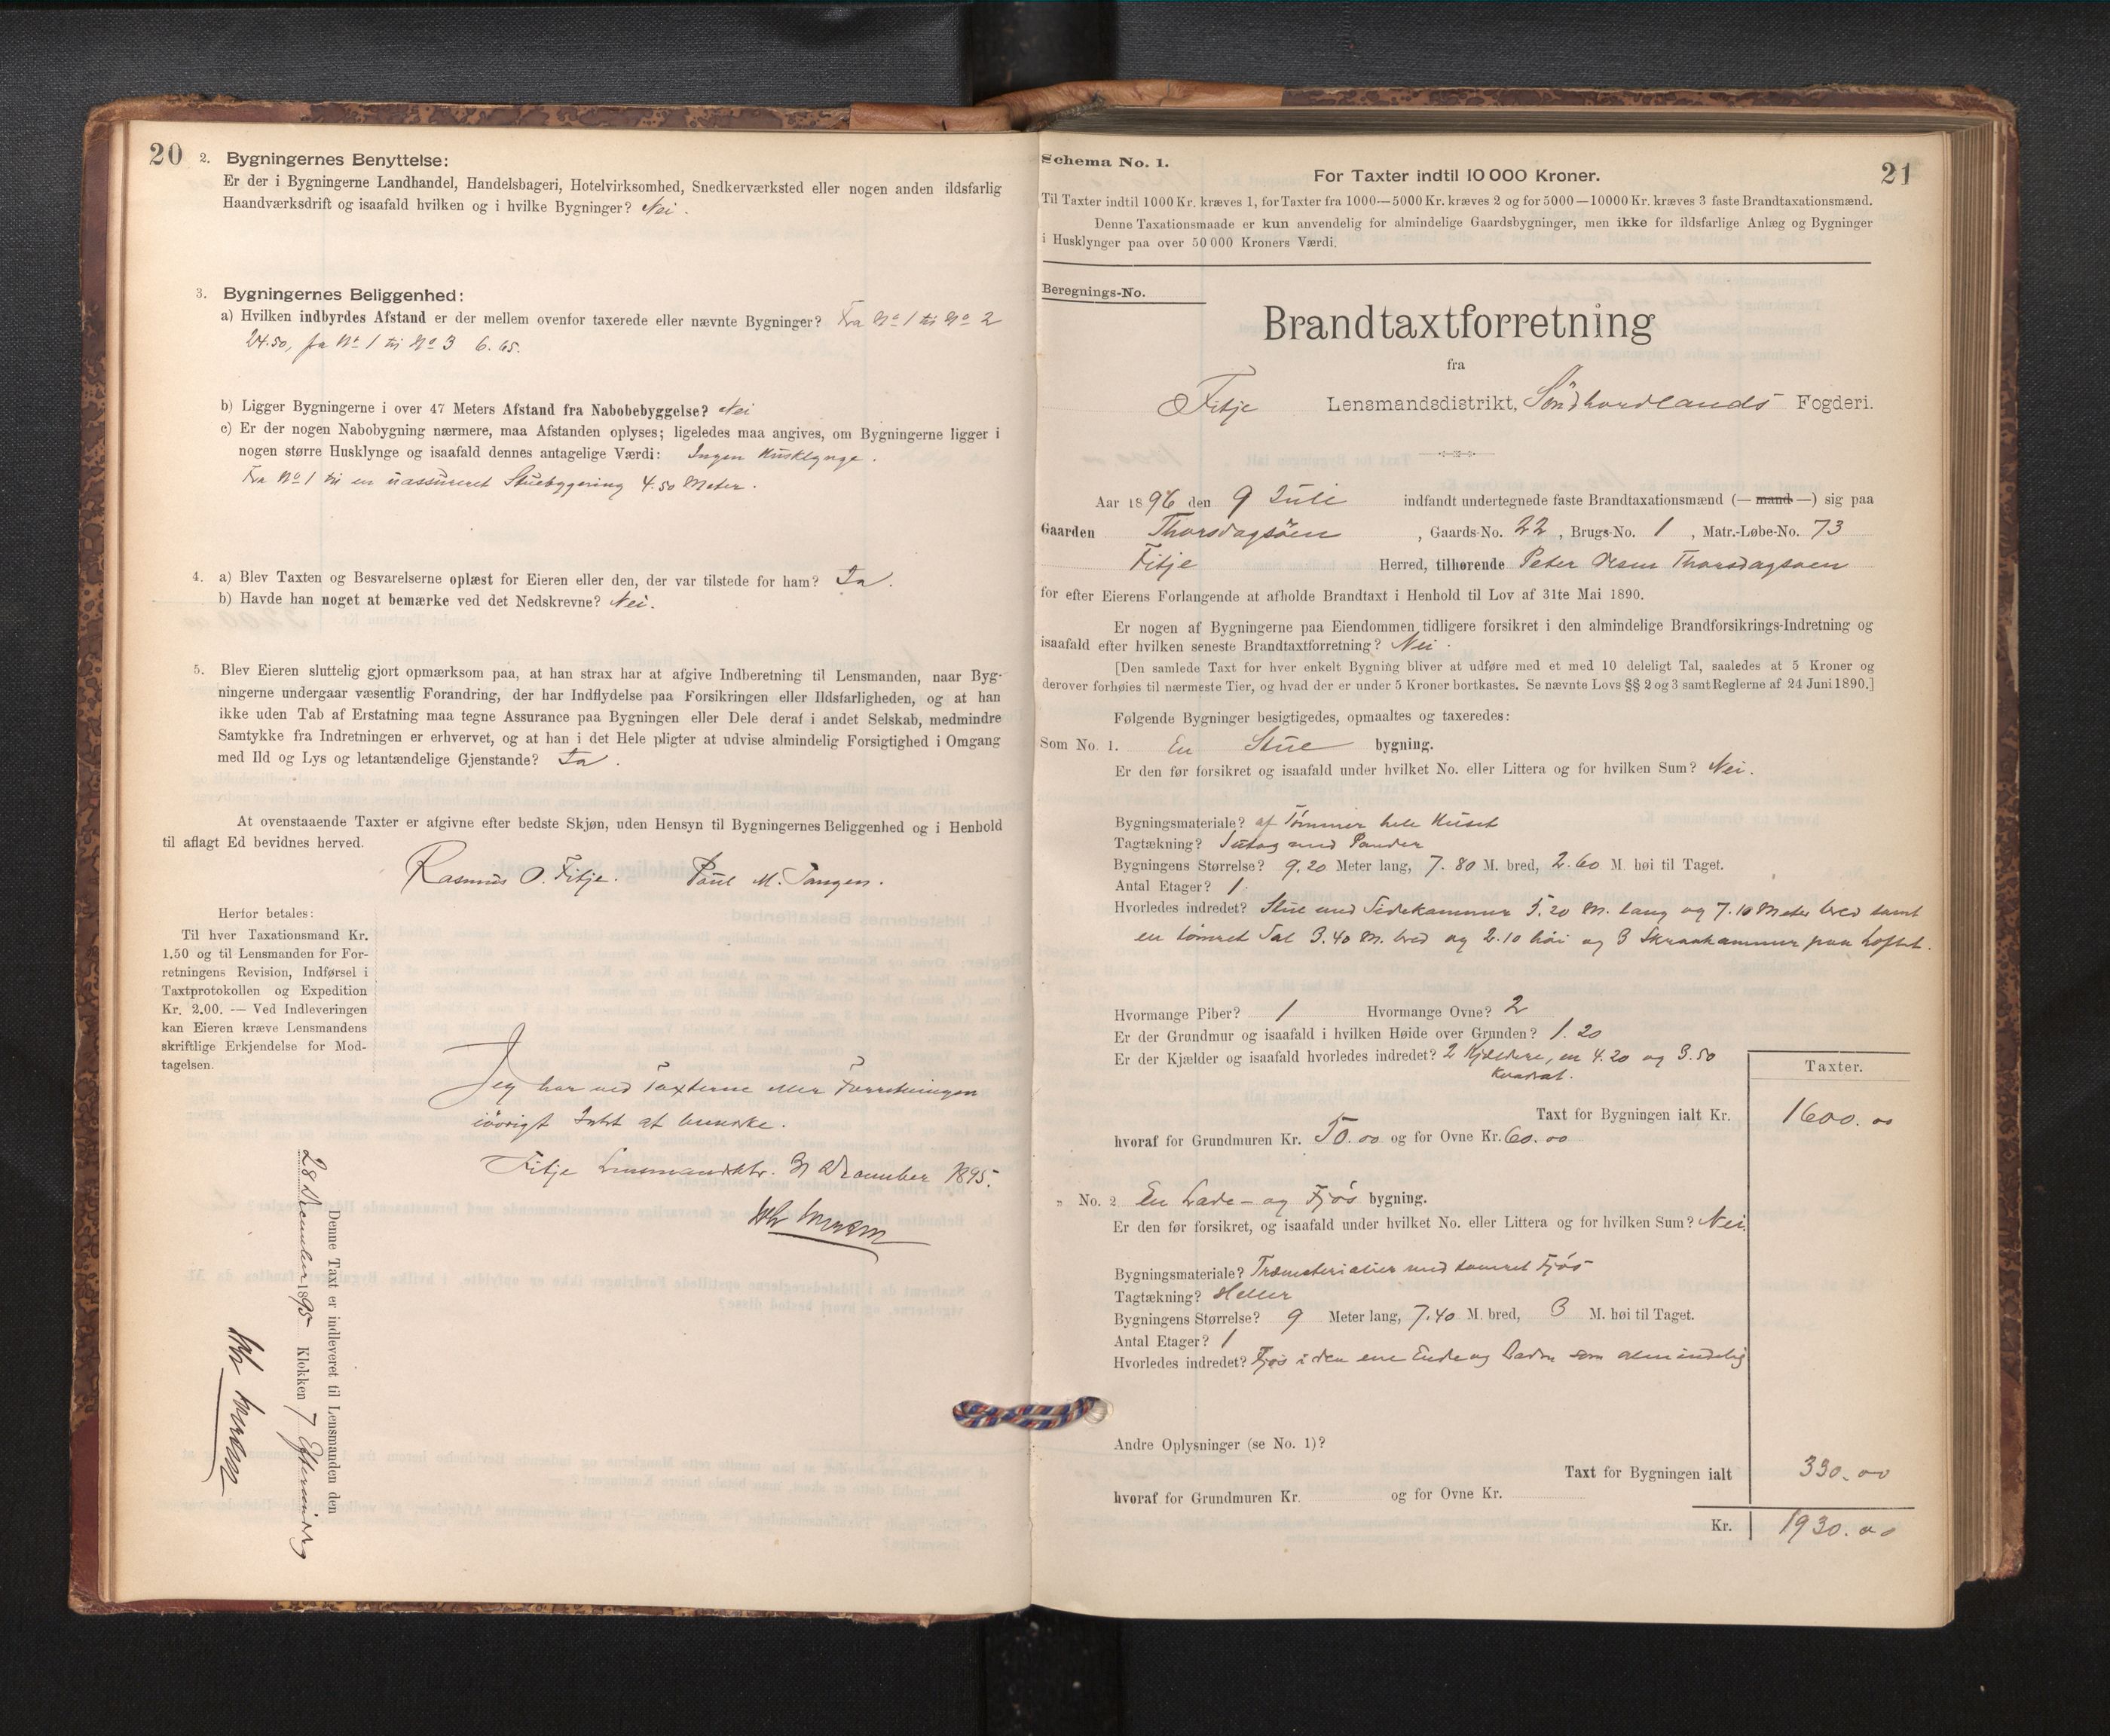 20
2. Bygningernes Benyttelse:
Er der i Bygningerne Landhandel, Handelsbageri, Hotelvirksomhed, Snedkerværksted eller nogen anden ildsfarlig
Haandværksdrift og isaafald hvilken og i hvilke Bygninger? Nei.
3. Bygningernes Beliggenhed:
a) Hvilken indbyrdes Afstand er der mellem ovenfor taxerede eller nævnte Bygninger? Fra No 1 til No 2
24.50, fra No 1 til No 3 6.65.
b) Ligger Bygningerne i over 47 Meters Afstand fra Nabobebyggelse? Nei
c) Er der nogen Nabobygning nærmere, maa Afstanden oplyses; ligeledes maa angives, om Bygningerne ligger i
nogen større Husklynge og isaafald dennes antagelige Værdi: Ingen Husklynge.
Fra No 1 til en uassureret Stuebygning 4.50 Meter.
4. a) Blev Taxten og Besvarelserne oplæst for Eieren eller den, der var tilstede for ham? Ja.
b) Havde han noget at bemærke ved det Nedskrevne? Nei.
5. Blev Eieren sluttelig gjort opmærksom paa, at han strax har at afgive Indberetning til Lensmanden, naar Byg-
ningerne undergaar væsentlig Forandring, der har Indflydelse paa Forsikringen eller Ildsfarligheden, og at han
ikke uden Tab af Erstatning maa tegne Assurance paa Bygningen eller Dele deraf i andet Selskab, medmindre
Samtykke fra Indretningen er erhvervet, og at han i det Hele pligter at udvise almindelig Forsigtighed i Omgang
med Ild og Lys og letantændelige Gjenstande? Ja.
At ovenstaaende Taxter er afgivne efter bedste Skjøn, uden Hensyn til Bygningernes Beliggenhed og i Henhold
til aflagt Ed bevidnes herved.
Rasmus O. Fitje. Poul M. Tangen.
Herfor betales:
Til hver Taxationsmand Kr.
1.50 og til Lensmanden for For-
retningens Revision, Indførsel i
Taxtprotokollen og Expedition
Kr. 2.00. — Ved Indleveringen
kan Eieren kræve Lensmandens
skriftlige Erkjendelse for Mod-
tagelsen.
Jeg har ved Taxterne eller Forretningen
iøvrigt Intet at bemærke.
Fitje Lensmandsktr. 31 December 1895.
Denne Taxt er indleveret til Lensmanden den
28 December 1895 Klokken 7 Eftermiddag
Schema No. 1.
21
For Taxter indtil 10 000 Kroner.
Til Taxter indtil 1000 Kr. kræves 1, for Taxter fra 1000—5000 Kr. kræves 2 og for 5000—10000 Kr. kræves 3 faste Brandtaxationsmænd.
Denne Taxationsmaade er kun anvendelig for almindelige Gaardsbygninger, men ikke for ildsfarlige Anlæg og Bygninger
i Husklynger paa over 50 000 Kroners Værdi.
Beregnings-No.
Brandtaxtforretning
fra
Fitje Lensmandsdistrikt, Söndhordlands Fogderi.
Aar 1896 den 9 Juli indfandt undertegnede faste Brandtaxationsmænd (— mand —) sig paa
Gaarden Thorsdagsöen, Gaards-No. 22, Brugs-No. 1, Matr.-Løbe-No. 73
Fitje Herred, tilhørende Peter Olsen Thorsdagsoen
for efter Eierens Forlangende at afholde Brandtaxt i Henhold til Lov af 31te Mai 1890.
Er nogen af Bygningerne paa Eiendommen tidligere forsikret i den almindelige Brandforsikrings-Indretning og
isaafald efter hvilken seneste Brandtaxtforretning? Nei.
[Den samlede Taxt for hver enkelt Bygning bliver at udføre med et med 10 deleligt Tal, saaledes at 5 Kroner og
derover forhøies til nærmeste Tier, og hvad der er under 5 Kroner bortkastes. Se nævnte Lovs §§ 2 og 3 samt Reglerne af 24 Juni 1890.]
Følgende Bygninger besigtigedes, opmaaltes og taxeredes:
Som No. 1. En Stue bygning.
Er den før forsikret og isaafald under hvilket No. eller Littera og for hvilken Sum? Nei.
Bygningsmateriale? af Tömmer hele Huset
Tagtækning? Sutag med Pander
Bygningens Størrelse? 9.20 Meter lang, 7.80 M. bred, 2.60 M. høi til Taget.
Antal Etager? 1.
Hvorledes indredet? Stue med Sidekammer 5.20 M. lang og 7.10 Meter bred samt
en tömret Sal 3.40 M. bred og 2.10 hoi og 3 Skraakammer paa Loftet.
Hvormange Piber? 1 Hvormange Ovne? 2
Er der Grundmur og isaafald i hvilken Høide over Grunden? 1.20
Er der Kjælder og isaafald hvorledes indredet? 2 Kjældere, en 4.20 og 3.50
Kvadrat.
Taxter.
Taxt for Bygningen ialt Kr. 1600.00
hvoraf for Grundmuren Kr. 50.00 og for Ovne Kr. 60.00
„ No. 2 En Lade- og Fjös bygning.
Er den før forsikret, og isaafald under hvilket No. eller Littera og for hvilken Sum? Nei
Bygningsmateriale? Træmaterialier med tomret Fjös
Tagtækning? Heller
Bygningens Størrelse? 9 Meter lang, 7.40 M. bred, 3 M. høi til Taget.
Antal Etager? 1
Hvorledes indredet? Fjös i den ene Ende og Laden som almindelig
Andre Oplysninger (se No. 1)?
Taxt for Bygningen ialt 330.00
hvoraf for Grundmuren Kr. og for Ovne Kr.
Kr. 1930.00